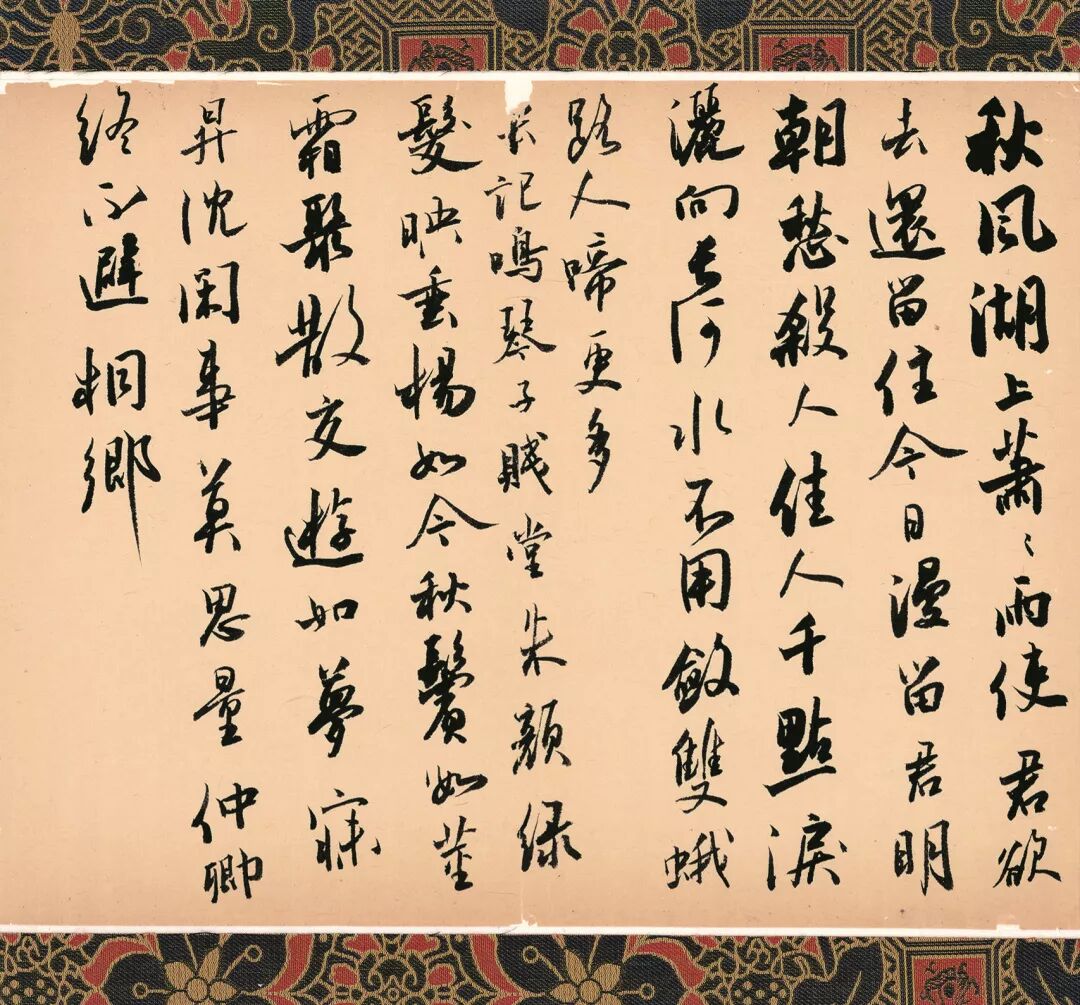 秋風湖上蕭〻雨使君欲
去還留住今日漫留君明
朝愁殺人佳人千點淚
灑向長河水不用斂雙蛾
路人啼更多
長記鳴琴子賤堂朱顏綠
髮映垂楊如今秋鬢如莖
霜聚散交遊如夢寐
昇沈閑事莫思量仲卿
終不避桐鄉